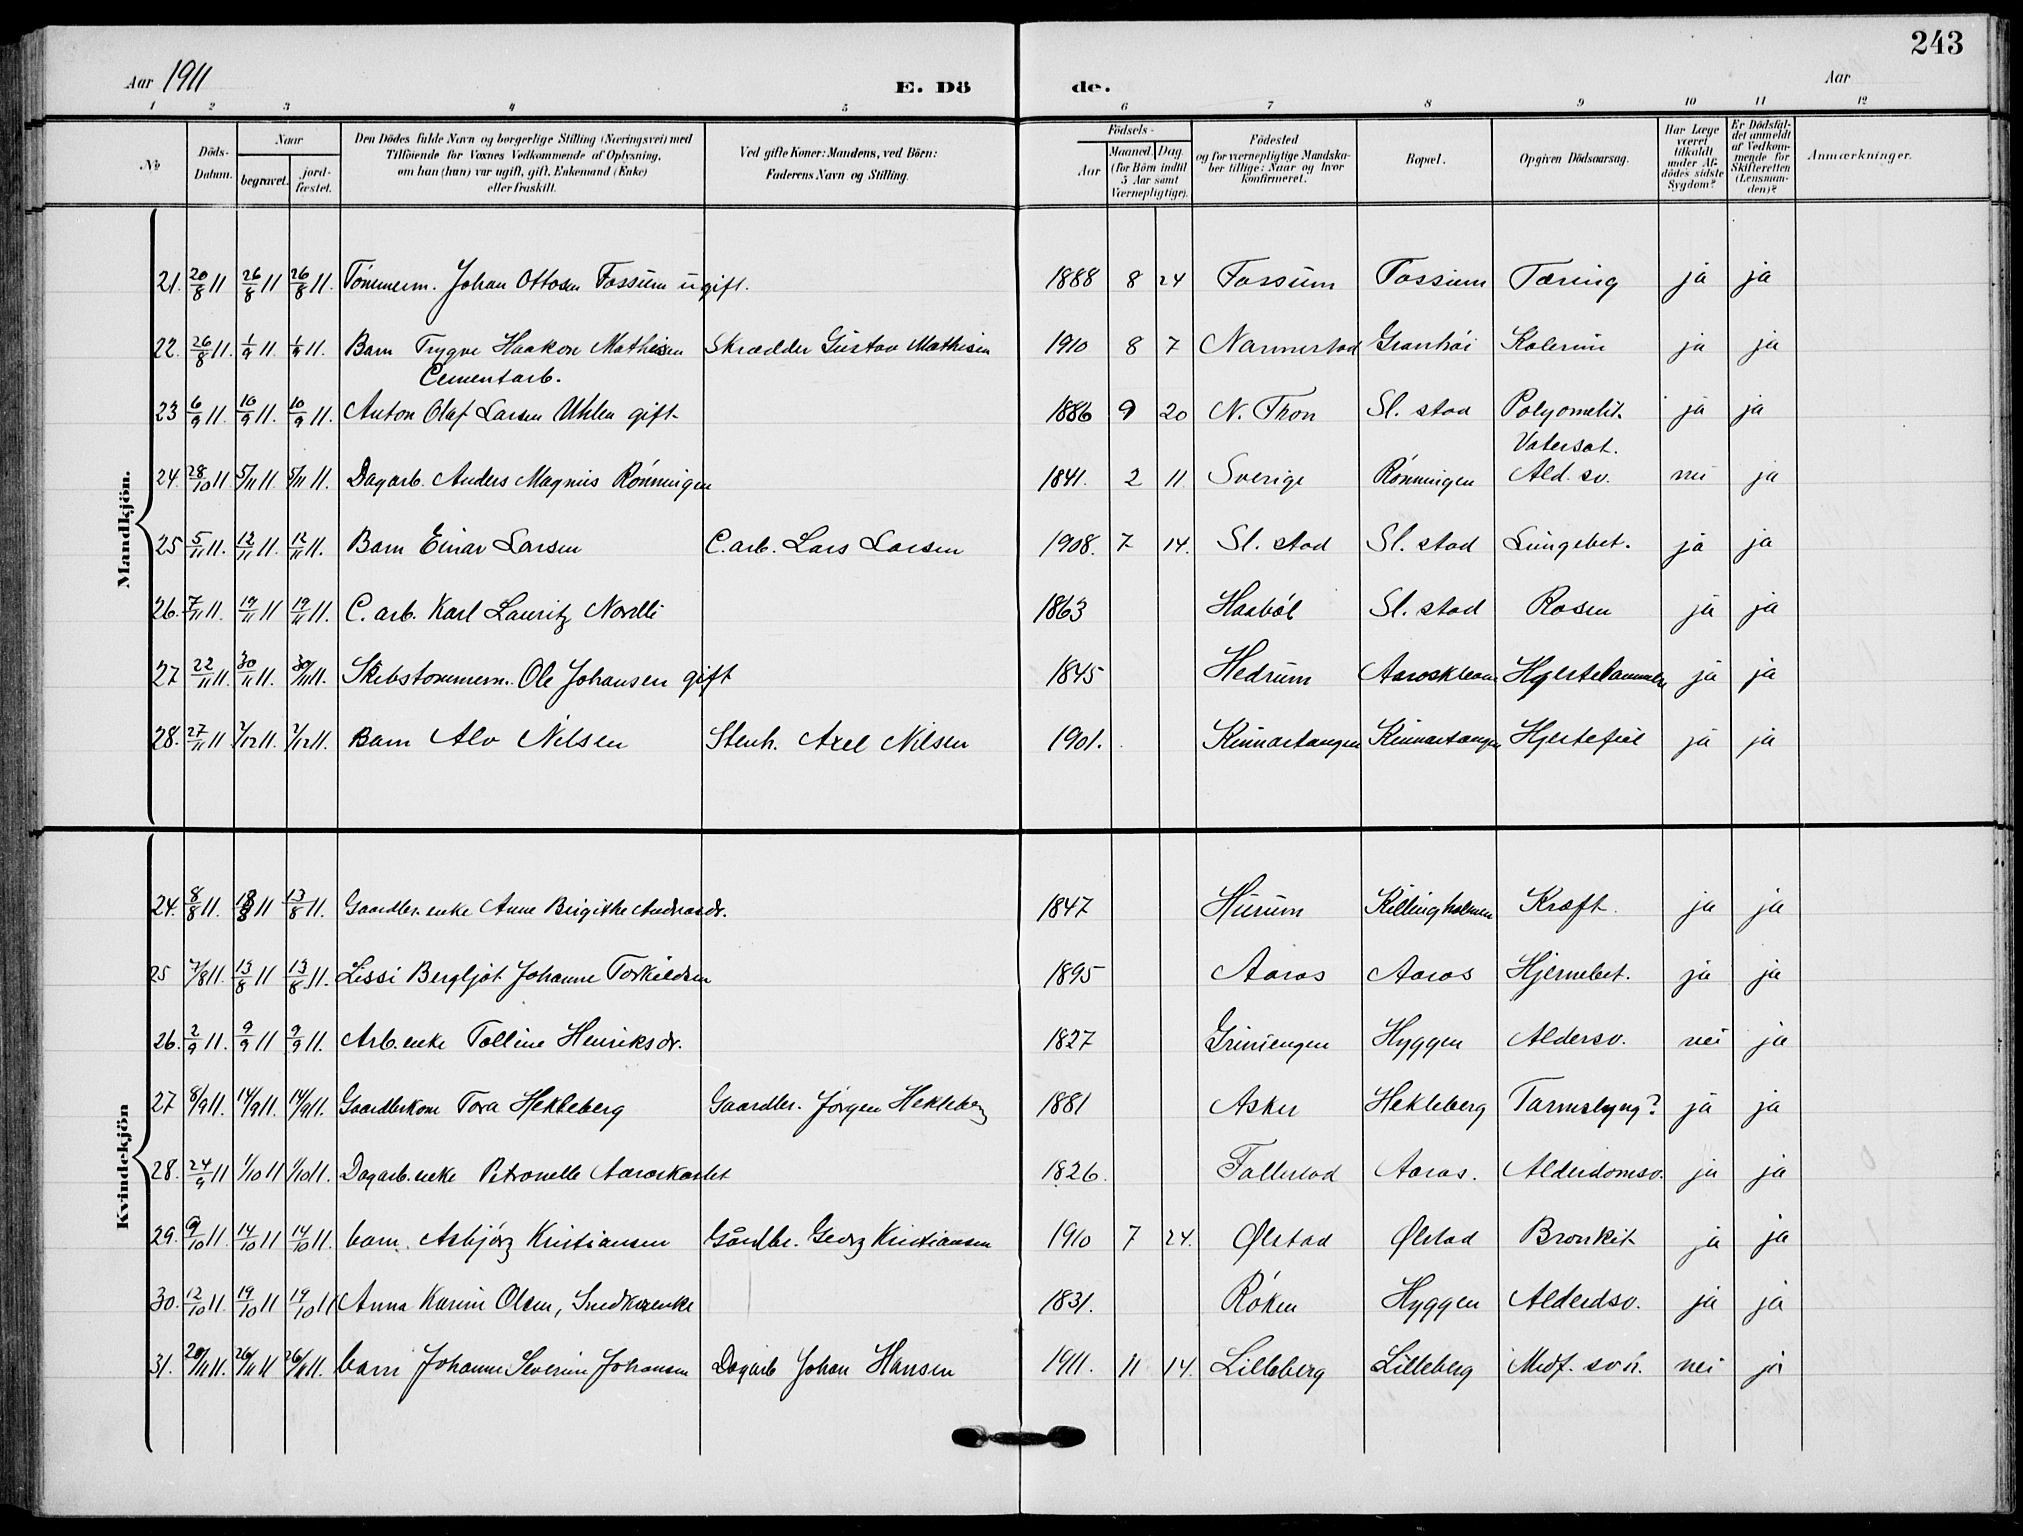 243
Aar 1911
E. Dö de.
Aar
1 2 3 4 5 6 7 8 9 10 11 12
No
Döds-Datum.
Naar
begravet.
jord-fæstet.
Den Dödes fulde Navn og borgerlige Stilling (Næringsvei) med
Tilföiende for Voxnes Vedkommende af Oplysning,
om han (hun) var ugift, gift, Enkemand (Enke)
eller fraskilt.
Ved gifte Koner: Mandens, ved Börn:
Faderens Navn og Stilling.
Födsels-
Aar
Maaned. Dag.
(for Börn indtil 5 Aar samt Værnepligtige).
Födested
og for værnepligtige Mandska-
ber tillige: Naar og hvor
konfirmeret.
Bopæl.
Opgiven Dödsaarsag.
Har Læge været tilkaldt under Af-dödes sidste Sygdom?
Er Dödsfal-det anmeldt af Vedkom-mende for Skifteretten (Lensman-den)?
Anmærkninger.
Mandkjön.
21. 20/8 11 26/8 11 26/8 11. Tömmerm. Johan Ottosen Fossum ugift. 1888 8 24 Fossum Fossum Tæring ja ja
22. 26/8 11. 1/9 11 1/9 11. Barn Trygve Haakon Mathisen Skrædder Gustav Mathisen 1910 8 7 Narmerstad Granhói Kolerine ja ja
Cementarb.
23 6/9 11. 10/9 11. 10/9 11. Anton Olaf Larsen Uhlen gift 1886 9 20 N. Thon Sl. stad Polyomelit. ja ja
Vatersot.
24. 28/10 11. 5/11 11 5/11 11. Dagarb. Anders Magnus Rönningen 1841. 2 11 Sverige Rönningen Ald. sv. nei ja
25 5/11 11. 12/11 11 12/11 11. Barn Einar Larsen C. arb. Lars Larsen 1908. 7 14. Sl. stad Sl. stad Lungebet. ja ja
26. 7/11 11. 19/11 11 19/11 11. C. arb. Karl Lauritz Norelli 1863 Haaböl Sl. stad Rosen ja ja
27 22/11 11. 30/11 11. 30/11 11. Skibstömmerm. Ole Johansen gift 1845 Hedrum Hjertelammelse ja ja
28. 27/11 11 2/12 11. 2/12 11. Barn Alv Nilsen Stenh. Axel Nilsen 1901. Kinnartangen Kinnartangen Hjertefeil ja ja
Kvindekjön
24. 8/8 11. 13/8 11 13/8 11. Gaardbr. enke Anne Birgithe Andreasdr. 1847 Hurum Killingholmen Kræft. ja ja
25 7/8 11. 13/8 11 13/8 11. Lissi Bergljot Johanne Torkildsen 1895 Aaros Aaros Hjernebet. ja ja
26. 2/9 11. 9/9 11 9/9 11. Arb. enke Tolline Henriksdr. 1827 Griniengen Hyggen Aldersv. nei ja
27 8/9 11. 14/9 11. 14/9 11. Gaardbrkone Tora Hekleberg Gaardbr. Jörgen Hekleberg 1881 Asker Hekleberg Tarmslyng? ja ja
28. 24/9 11 1/10 11 1/10 11. Dagarb. enke Petronelle Aaroskastet 1826. Follestad Aaros. Alderdomsv. ja ja
29. 9/10 11. 14/10 11 14/10 11. barn. Asbjörg Kristiansen Gårdbr. Georg Kristiansen 1910 7 24. Ølstad Ølstad Bronkit ja ja
30. 12/10 11. 19/10 11 19/10 11 Anna Karine Olsen, Snedkerenke 1831. Röken Hyggen Alderdsv. ja ja
31. 20/11 11. 26/11 11 26/11 11. barn Johanne Severine Johansen Dagarb Johan Hansen 1911. 11 14. Lilleberg Lilleberg Medf. svh. nei ja